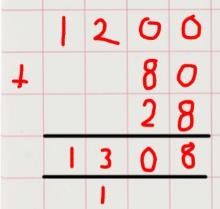 1200
+ 80
28
1308
1